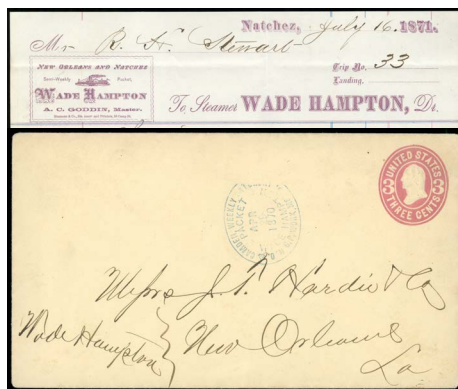 Natchez, July 16 1871.
Mr R. H. Stewart
Trip No. 33
Landing,
NEW ORLEANS AND NATCHEZ
Semi-Weekly Packet,
WADE HAMPTON
A. C. GODDIN, Master.
To Steamer WADE HAMPTON, Dr.
UNITED STATES
3 3
THREE CENTS
WEEKLY
PACKET
APR
1870
Messrs J. T. Hardie & Co
Wade Hampton
New Orleans
La